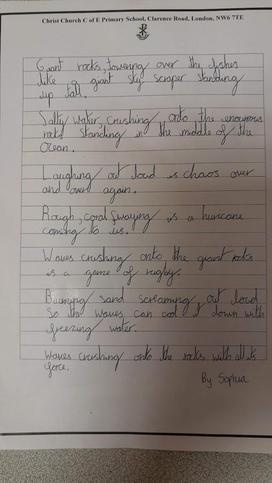 Christ Church C of E Primary School, Clarence Road, London, NW6 7TE
Giant rocks, towering over the fishes
like a giant sky scraper standing
up tall.
Salty water, crushing onto the enourmous
rocks standing in the middle of the
Ocean.
Laughing out loud is chaos over
and over again.
Rough, coral swaying is a huricane
coming to us.
Waves crushing onto the giant rocks
is a game of rugby.
Burning sand screaming, out loud
So the waves can cool it down with
freezing water.
Waves crushing onto the rocks with all its
force.
By Sophia